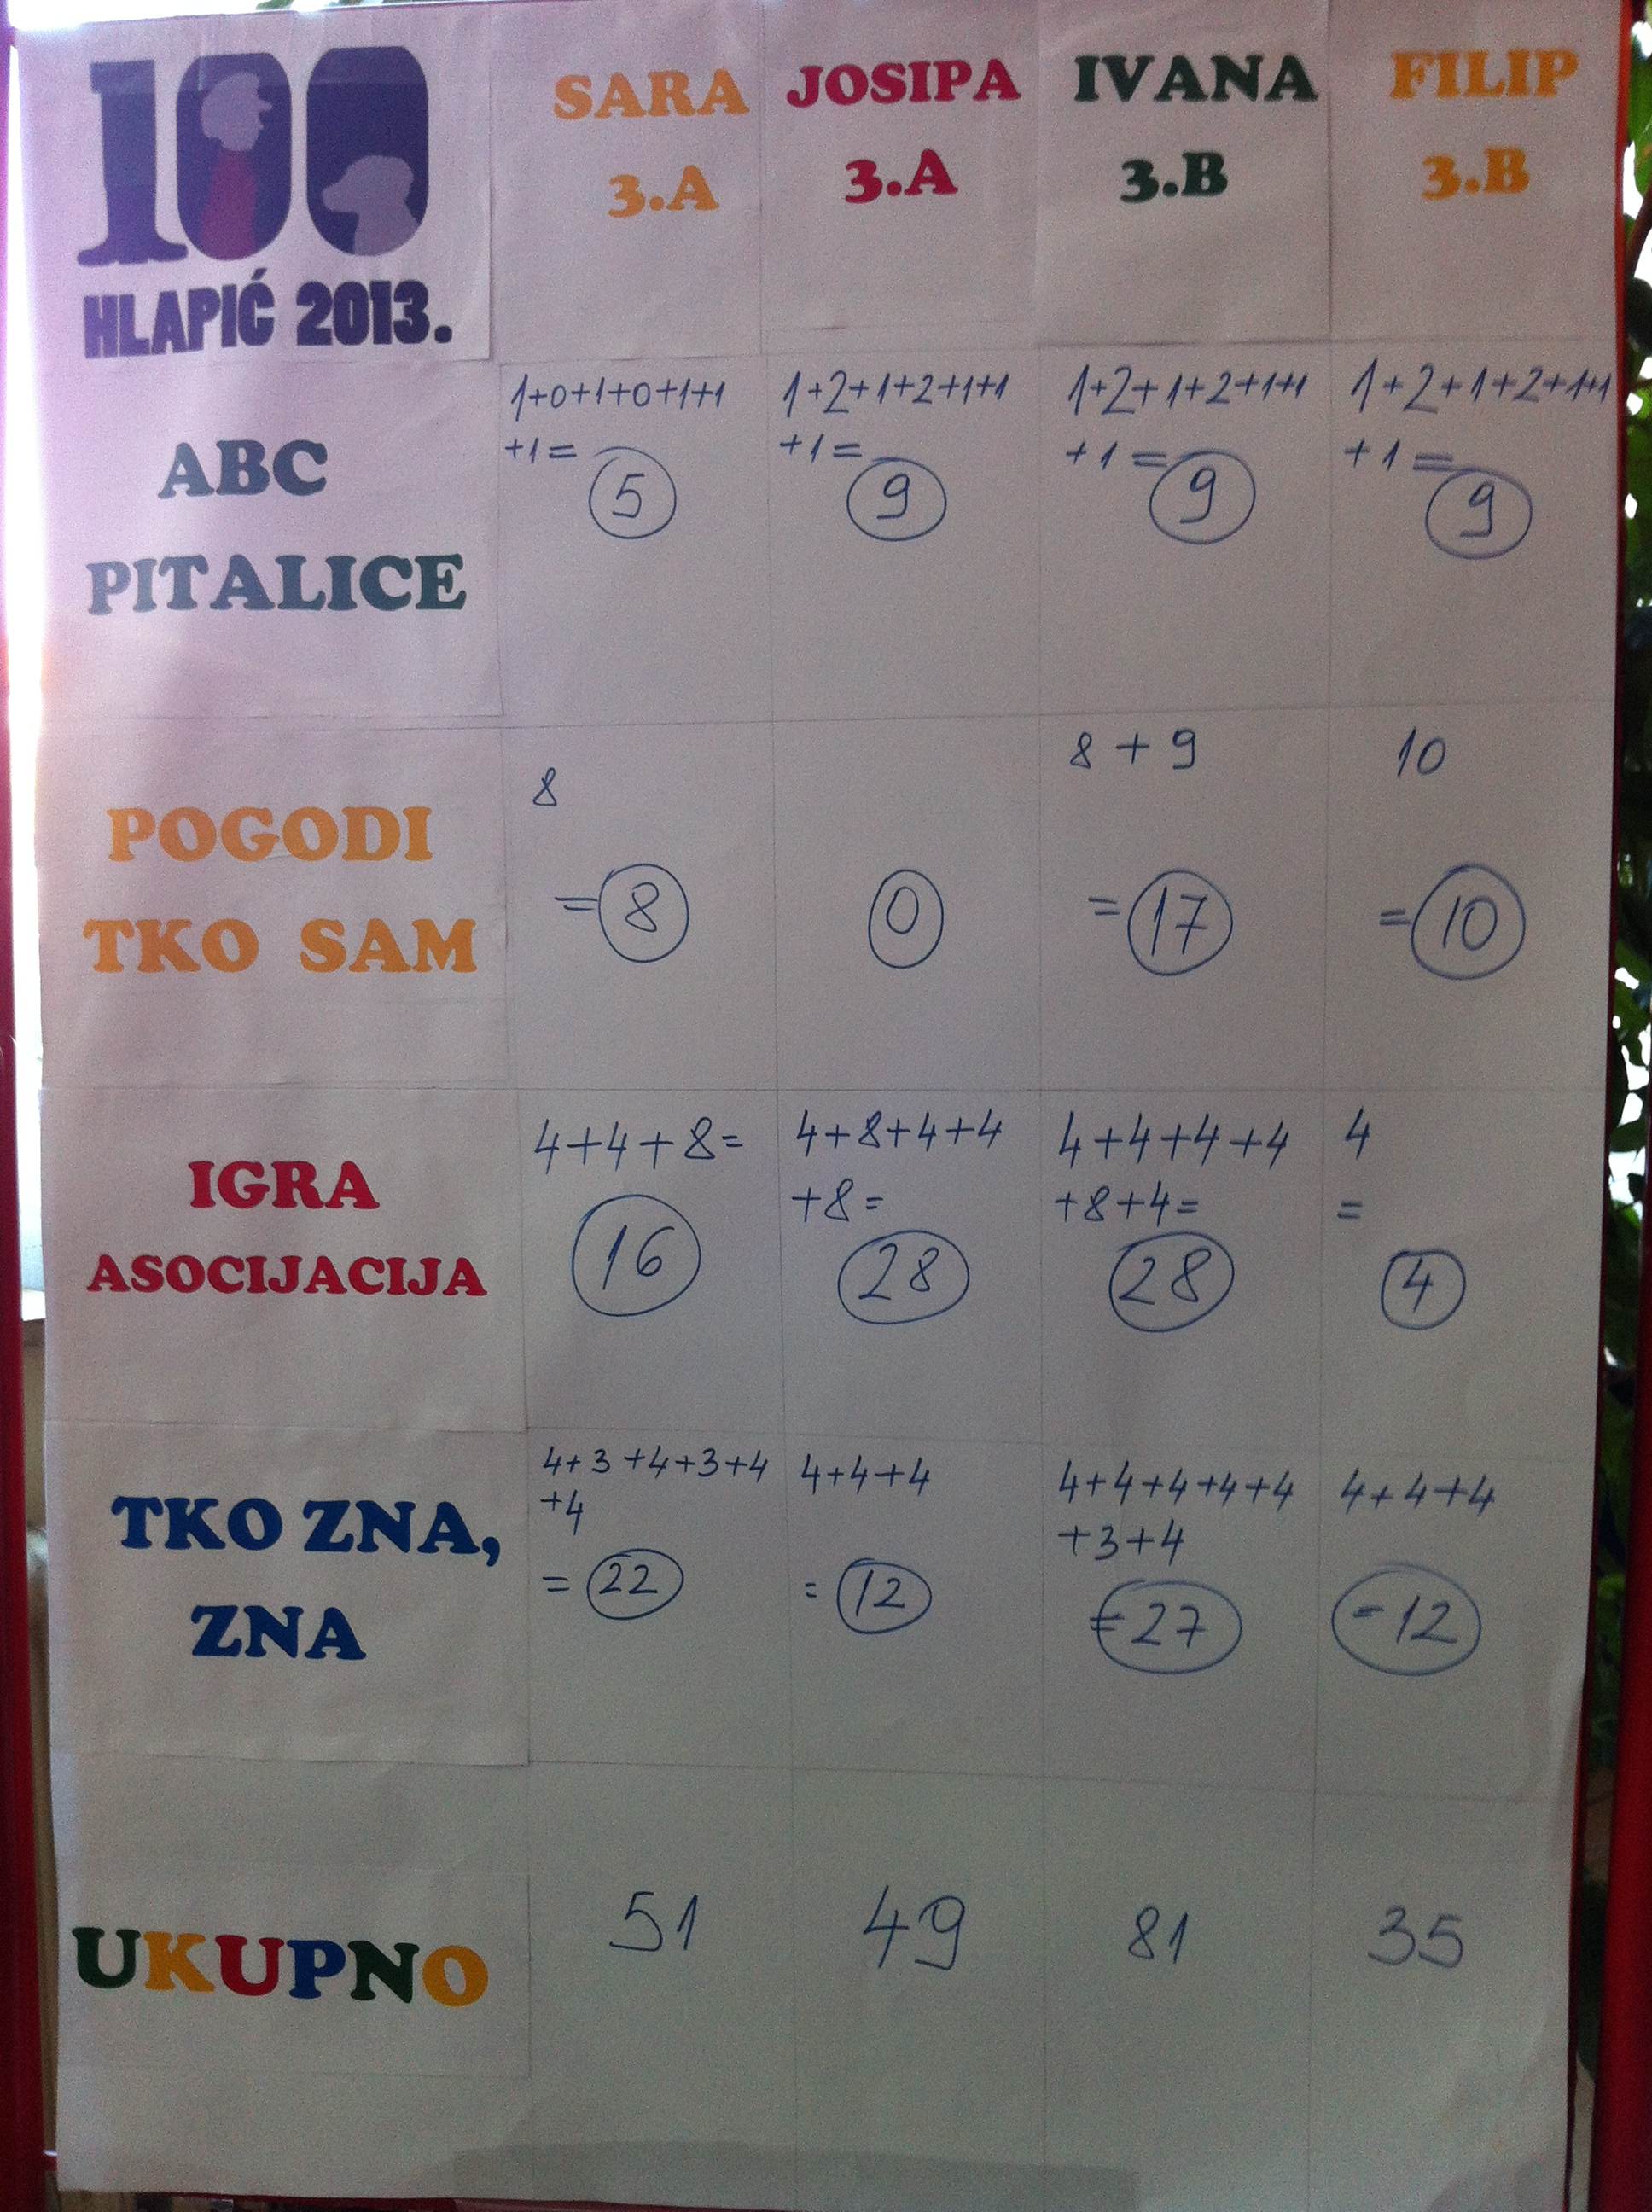 100
HLAPIĆ 2013.
SARA
3.A
JOSIPA
3.A
IVANA
3.B
FILIP
3.B
ABC
PITALICE
1+0+1+0+1+1
+1=
5
1+2+1+2+1+1
+1=
9
1+2+1+2+1+1
+1=
9
1+2+1+2+1+1
+1=
9
POGODI
TKO SAM
8
=8
0
8+9
=17
10
=10
IGRA
ASOCIJACIJA
4+4+8=
16
4+8+4+4
+8=
28
4+4+4+4
+8+4=
28
4
=
4
TKO ZNA,
ZNA
4+3+4+3+4
+4
=22
4+4+4
=12
4+4+4+4+4
+3+4
=27
4+4+4
=12
UKUPNO
51
49
81
35